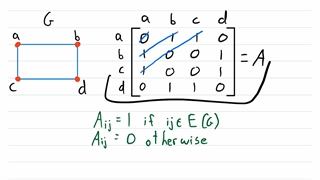 G
a b
c d
a b c d
a 0 1 1 0
b 1 0 0 1
c 1 0 0 1
d 0 1 1 0
= A
Aij = 1 if ij ∈ E(G)
Aij = 0 otherwise